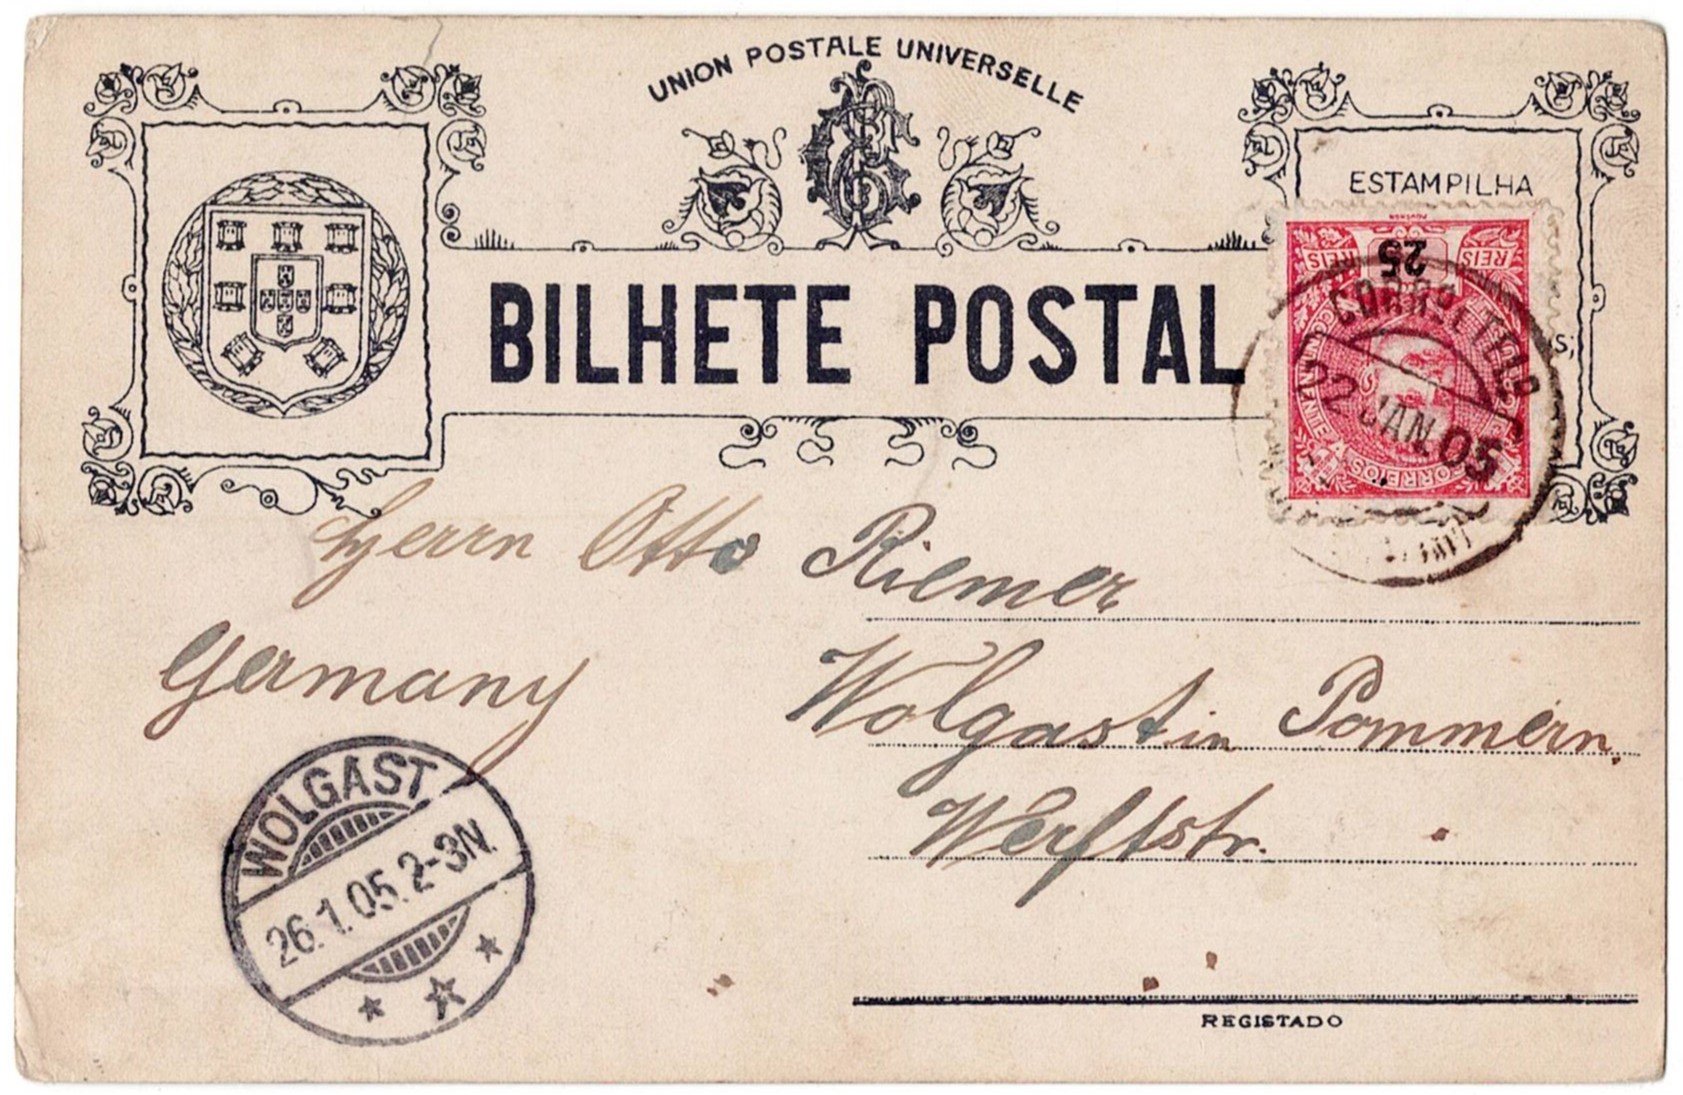 UNION POSTALE UNIVERSELLE
ESTAMPILHA
BILHETE POSTAL
REIS 25 REIS
CORREIOS
CORRO E TELO
22 JAN. 05
Herrn Otto Riemer
Germany
Wolgast in Pommern,
Werftstr.
WOLGAST
26.1.05.2-3N.
REGISTADO